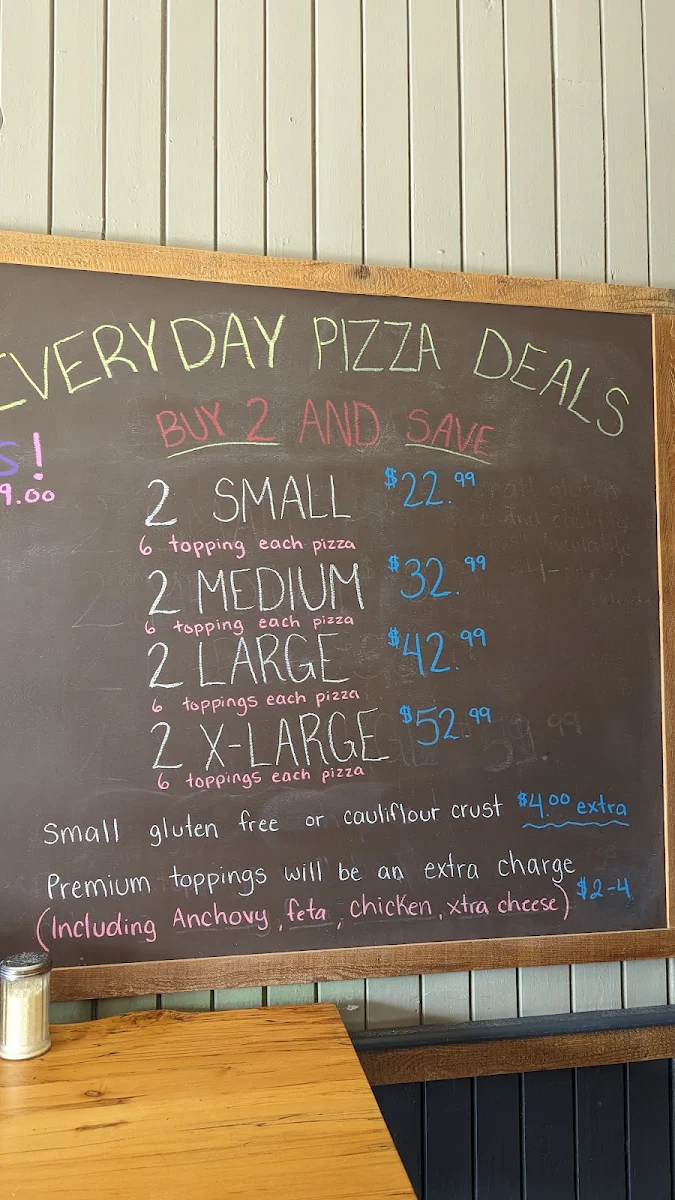 EVERYDAY PIZZA DEALS
BUY 2 AND SAVE
S!
9.00
2 SMALL $22.99
6 topping each pizza
2 MEDIUM $32.99
6 topping each pizza
2 LARGE $42.99
6 toppings each pizza
2 X-LARGE $52.99
6 toppings each pizza
Small gluten free or cauliflour crust $4.00 extra
Premium toppings will be an extra charge
(Including Anchovy, feta, chicken, xtra cheese) $2-4